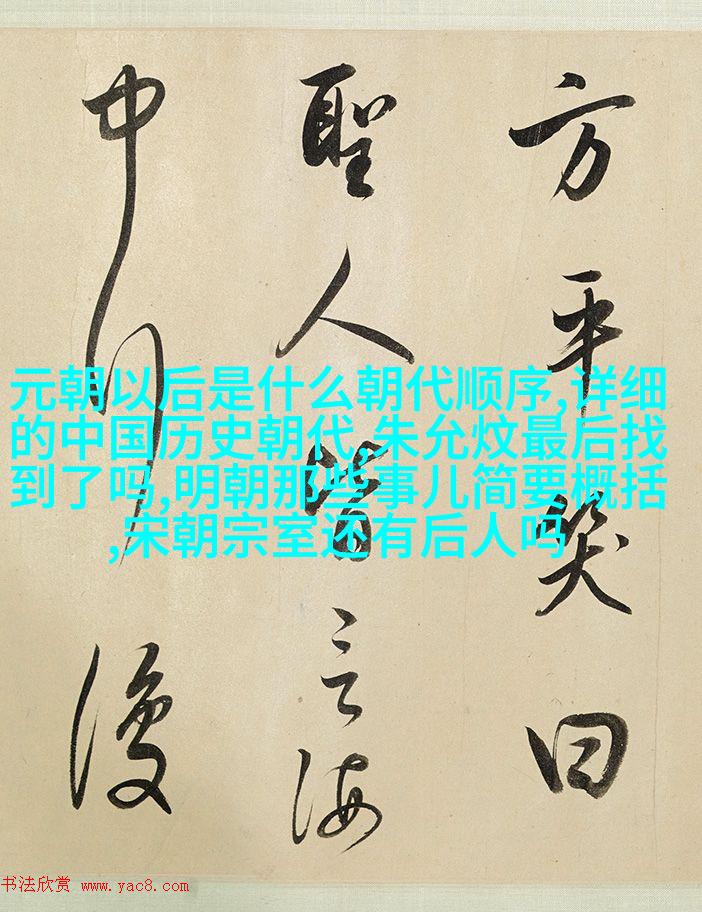 方平笑曰
聖人皆言海
中行復
元朝以后是什么朝代顺序,详细
的中国历史朝代,朱允炆最后找
到了吗,明朝那些事儿简要概括
,宋朝宗室还有后人吗
书法欣赏 www.yac8.com